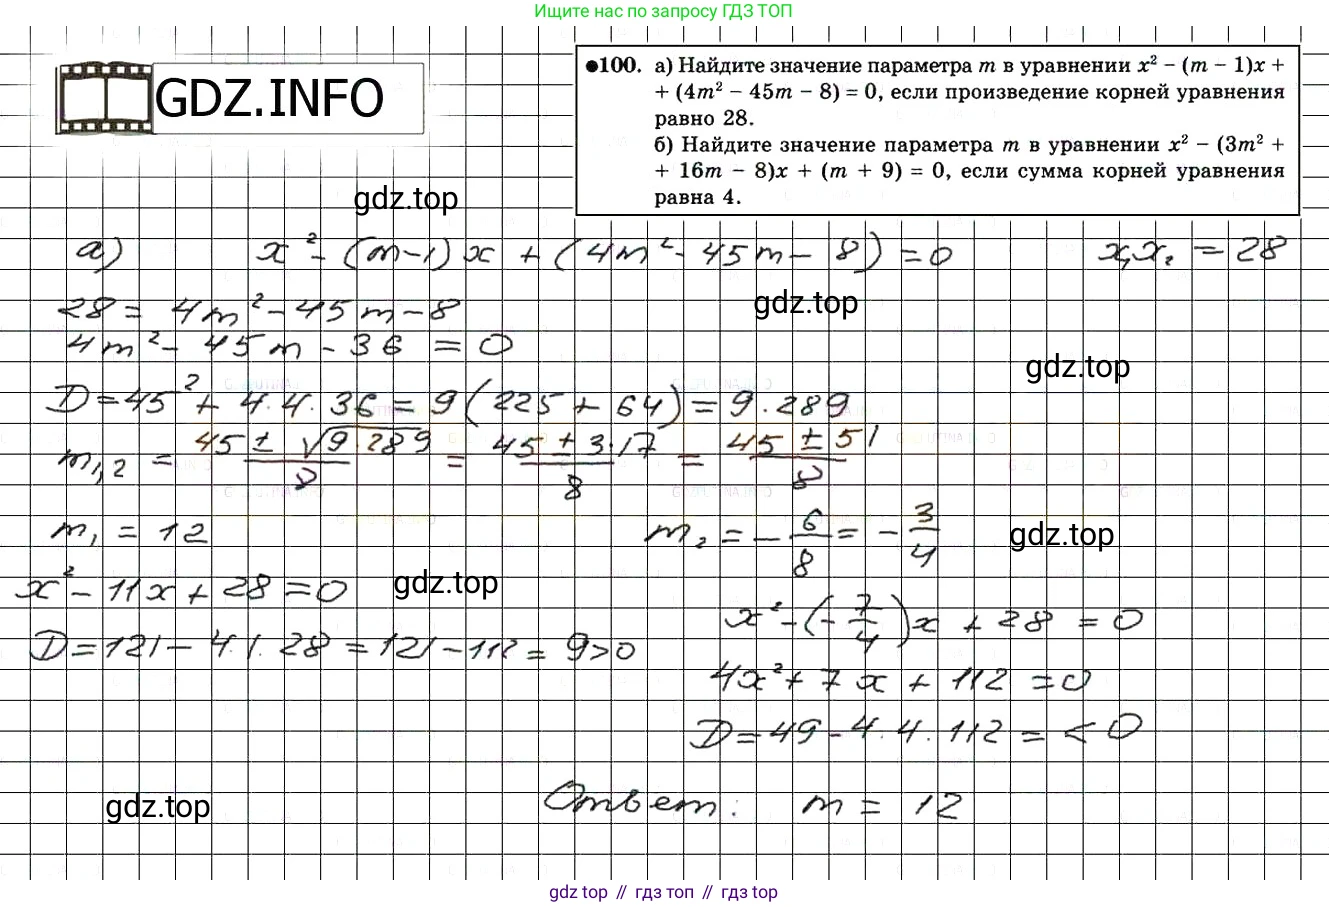 Ищите нас по запросу ГДЗ ТОП
GDZ.INFO
●100. а) Найдите значение параметра m в уравнении x² − (m − 1)x +
+ (4m² − 45m − 8) = 0, если произведение корней уравнения
равно 28.
б) Найдите значение параметра m в уравнении x² − (3m² +
+ 16m − 8)x + (m + 9) = 0, если сумма корней уравнения
равна 4.
gdz.top
а) x² − (m−1)x + (4m² − 45m − 8) = 0 x₁x₂ = 28
28 = 4m² − 45m − 8
gdz.top
4m² − 45m − 36 = 0
gdz.top
D = 45² + 4·4·36 = 9(225 + 64) = 9·289
m₁,₂ = (45 ± √(9·289))/8 = (45 ± 3·17)/8 = (45 ± 51)/8
m₁ = 12 m₂ = −6/8 = −3/4
gdz.top
x² − 11x + 28 = 0
gdz.top
x² − (−7/4)x + 28 = 0
D = 121 − 4·1·28 = 121 − 112 = 9 > 0
4x² + 7x + 112 = 0
D = 49 − 4·4·112 = < 0
gdz.top
Ответ: m = 12
gdz top // гдз топ // gdz top